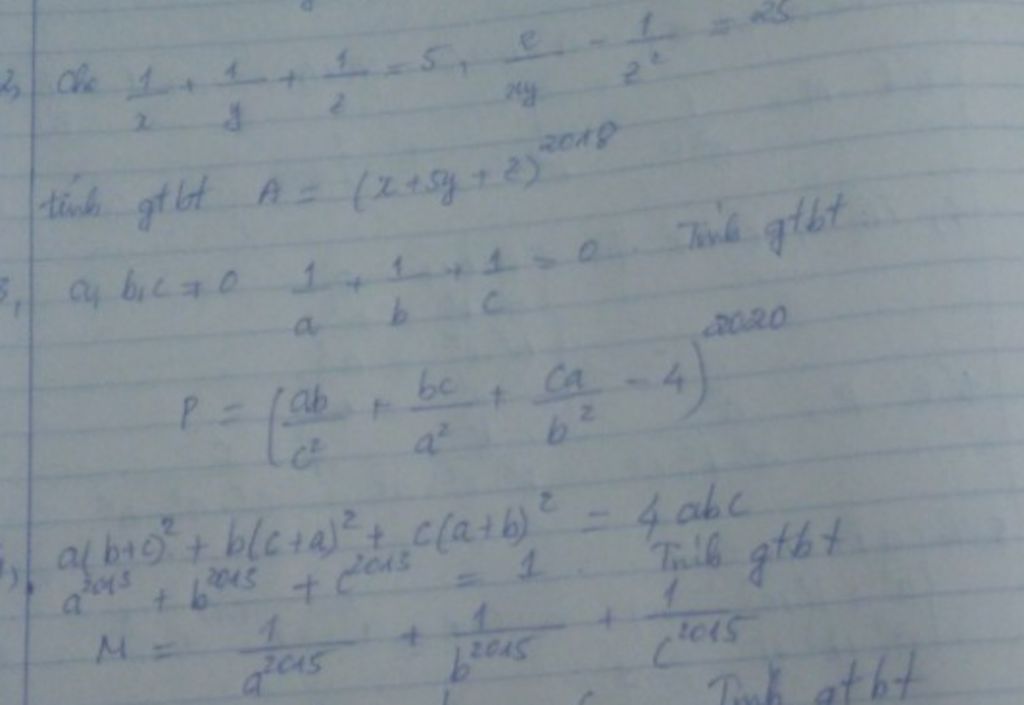 2, Cho 1/x + 1/y + 1/z = 5, e/xy - 1/z² = 25
tính gtbt A = (x + 5y + z)^2018
3, a, b, c ≠ 0 1/a + 1/b + 1/c = 0 Tính gtbt
P = (ab/c² + bc/a² + ca/b² - 4)^2020
a(b+c)² + b(c+a)² + c(a+b)² = 4abc
a^2015 + b^2015 + c^2015 = 1. Tính gtbt
M = 1/a^2015 + 1/b^2015 + 1/c^2015
Tính gtbt